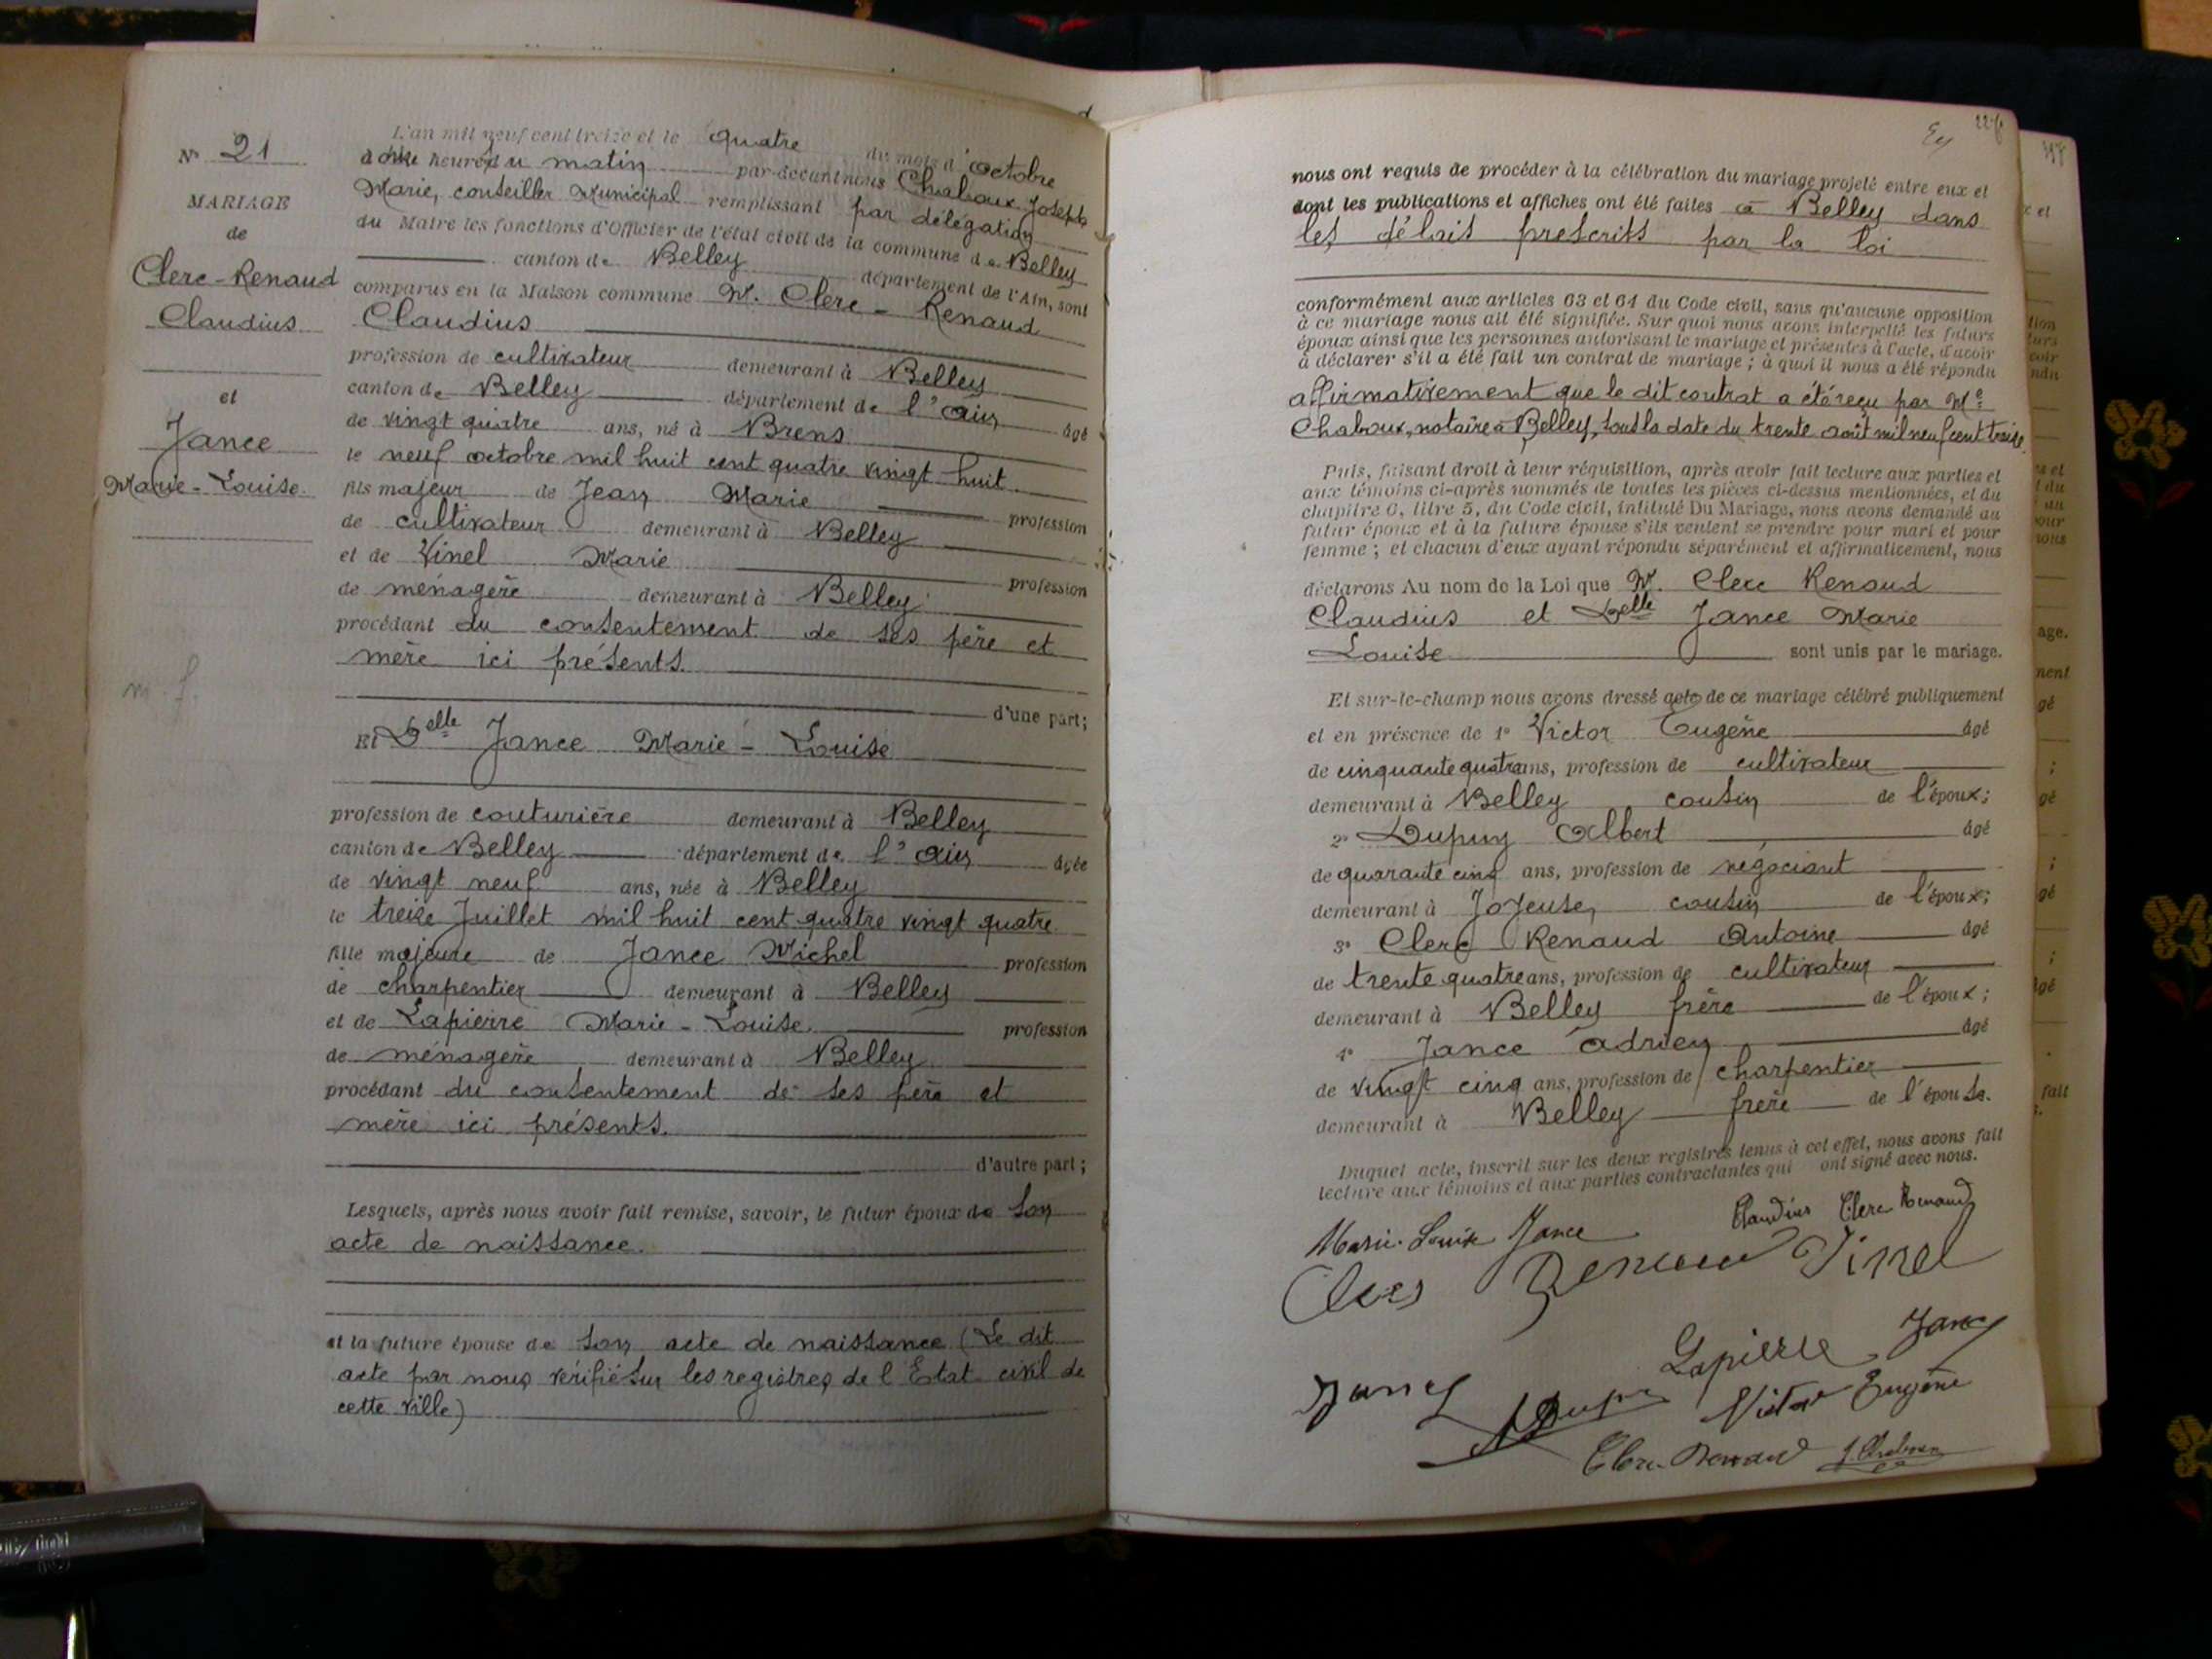 N° 21
MARIAGE
de
Clerc-Renaud
Claudius
et
Jance
Marie-Louise.
m. f.
L'an mil neuf cent treize et le quatre du mois d'octobre
à onze heures du matin par-devant nous Chaboux Joseph
Marie, conseiller Municipal remplissant par délégation
du Maire les fonctions d'Officier de l'état civil de la commune de Belley
canton de Belley département de l'Ain, sont
comparus en la Maison commune M. Clerc - Renaud
Claudius
profession de cultivateur demeurant à Belley
canton de Belley département de l'ain âgé
de vingt quatre ans, né à Brens
le neuf octobre mil huit cent quatre vingt huit.
fils majeur de Jean Marie profession
de cultivateur demeurant à Belley
et de Vinel Marie profession
de ménagère demeurant à Belley
procédant du consentement de ses père et
mère ici présents.
d'une part;
Et Delle Jance Marie - Louise
profession de couturière demeurant à Belley
canton de Belley département de l'ain âgée
de vingt neuf ans, née à Belley
le treize Juillet mil huit cent quatre vingt quatre
fille majeure de Jance Michel profession
de charpentier demeurant à Belley
et de Lapierre Marie - Louise. profession
de ménagère demeurant à Belley
procédant du consentement de ses père et
mère ici présents.
d'autre part;
Lesquels, après nous avoir fait remise, savoir, le futur époux de son
acte de naissance.
et la future épouse de son acte de naissance (Le dit
acte par nous vérifié sur les registres de l'Etat civil de
cette ville)
nous ont requis de procéder à la célébration du mariage projeté entre eux et
dont les publications et affiches ont été faites à Belley dans
les délais prescrits par la loi
conformément aux articles 63 et 64 du Code civil, sans qu'aucune opposition
à ce mariage nous ait été signifiée. Sur quoi nous avons interpellé les futurs
époux ainsi que les personnes autorisant le mariage et présentes à l'acte, d'avoir
à déclarer s'il a été fait un contrat de mariage; à quoi il nous a été répondu
affirmativement que le dit contrat a été reçu par Me
Chaboux, notaire à Belley, sous la date du trente août mil neuf cent treize.
Puis, faisant droit à leur réquisition, après avoir fait lecture aux parties et
aux témoins ci-après nommés de toutes les pièces ci-dessus mentionnées, et du
chapitre 6, titre 5, du Code civil, intitulé Du Mariage, nous avons demandé au
futur époux et à la future épouse s'ils veulent se prendre pour mari et pour
femme; et chacun d'eux ayant répondu séparément et affirmativement, nous
déclarons Au nom de la Loi que M. Clerc Renaud
Claudius et Delle Jance Marie
Louise sont unis par le mariage.
Et sur-le-champ nous avons dressé acte de ce mariage célébré publiquement
et en présence de 1° Victor Eugène âgé
de cinquante quatre ans, profession de cultivateur
demeurant à Belley cousin de l'époux;
2° Dupuy Albert âgé
de quarante cinq ans, profession de négociant
demeurant à Joyeuse, cousin de l'époux;
3° Clerc Renaud Antoine âgé
de trente quatre ans, profession de cultivateur
demeurant à Belley frère de l'époux;
4° Jance adrien âgé
de vingt cinq ans, profession de charpentier
demeurant à Belley frère de l'épouse.
Duquel acte, inscrit sur les deux registres tenus à cet effet, nous avons fait
lecture aux témoins et aux parties contractantes qui ont signé avec nous.
Marie-Louise Jance Claudius Clerc Renaud
Clerc Renaud Vinel
Lapierre Jance
Jance Dupuy Victor Eugène
Clerc-Renaud J. Chaboux